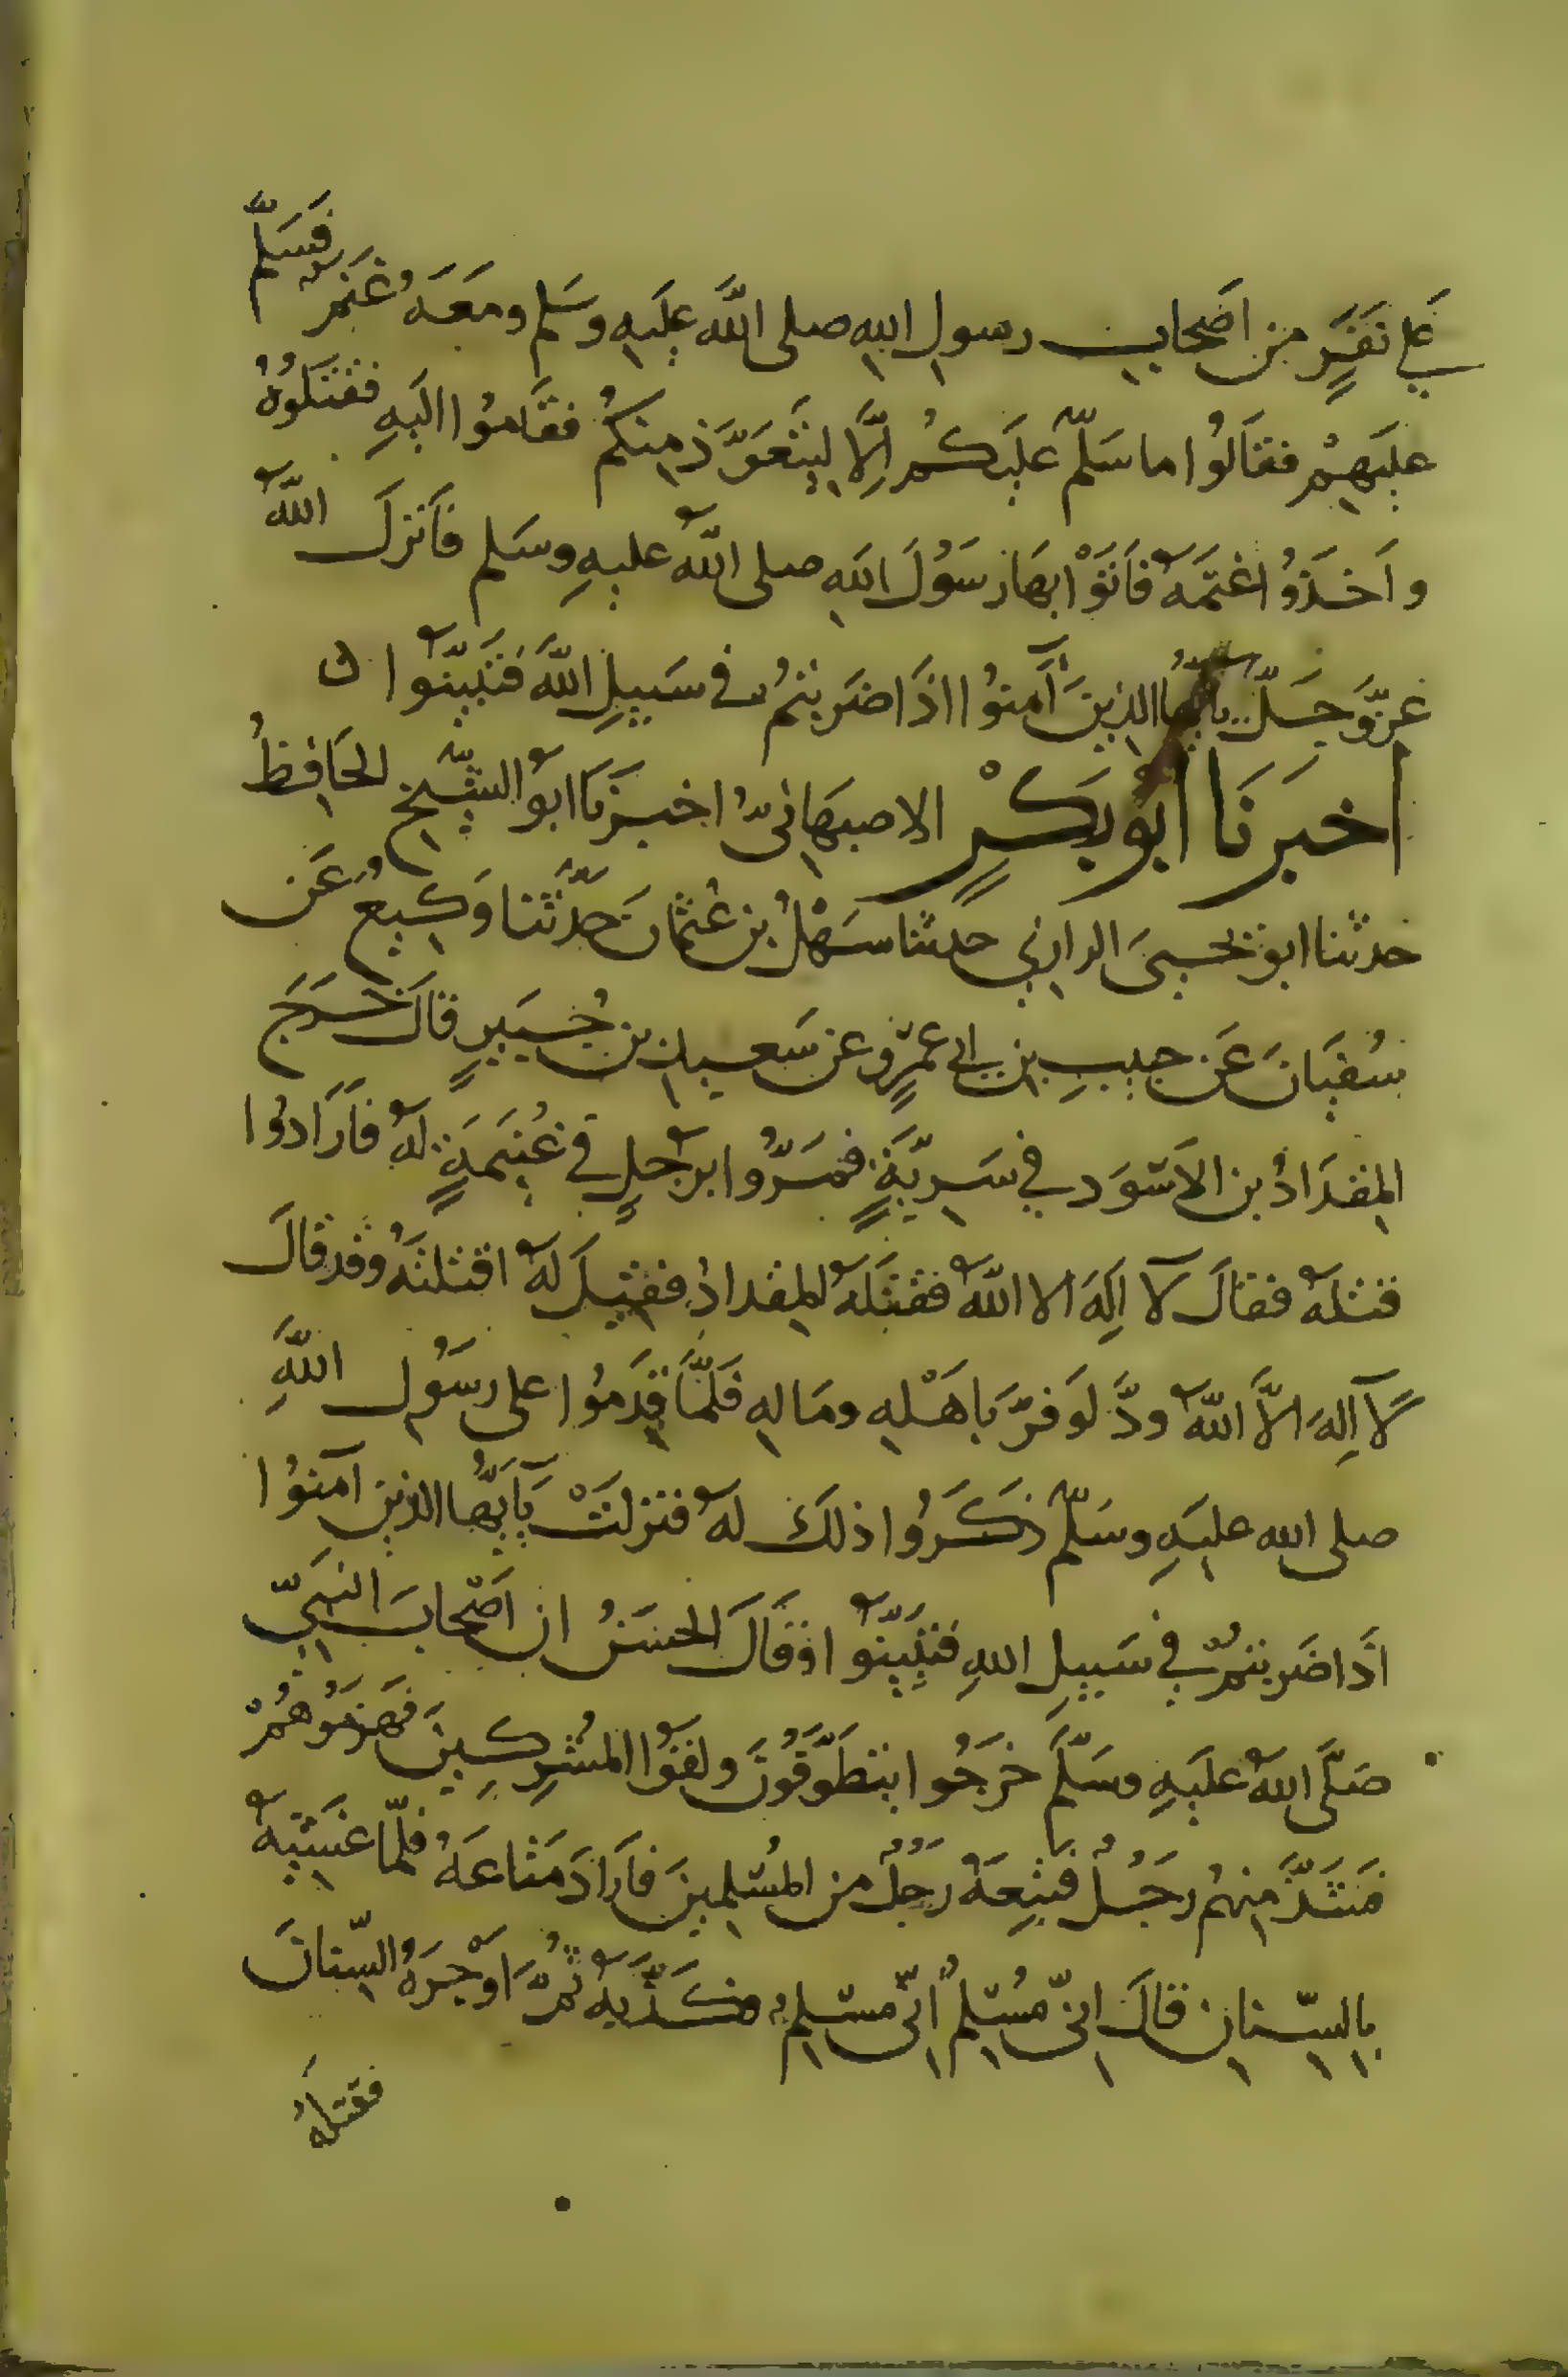 على نَفَرٍ من اَصحابِ رسول الله صلى اللَّه عليه وسلم ومعَهُ غنَمٌ فسَلّم
عليَهِمْ فقَالُوا ما سَلّم عليَكُم اِلَّا ليَتَعَوَّذ منِكُم فقَامُوا اليَهِ فقَتَلُوهُ
واَخَذوُا غنَمهُ فاَتَوْا بهَا رسَوُلَ الله صلى اللّه عليهِ وسَلم فاَنزلَ اللّه
عزَّوَجَلّ يايّهُا الذينَ آمنوُا اذَا ضَربتمُ في سَبيلِ اللَّه فتَبَيّنَوُا ك
اخبرَنَا اَبوُ بَكْرٍ الاصبهَانيّ اخبرَنَا ابوُ الشّيخ الحَافِظُ
حدثنا ابو يحيىَ الرازي حدثنا سَهْلُ بن عُثمانَ حدّثنا وَكيعٌ عَن
سُفيَانَ عَن حبيبِ بن ابي عمَرٍو عن سَعيد بن جُبيَرٍ قالَ خرَجَ
المِقدَادُ بن الاَسَوَد في سَرِيّةٍ فمَرّوُا برَجلٍ في غُنيَمةٍ لهُ فاَرَادوُا
قتلهُ فقالَ لا اِلهَ الا اللَّهُ فقَتَلهُ المِقدادُ فقيلَ لهُ اقتلتَهُ وقد قالَ
لَا اِلهَ الاَّ اللّهُ ودَّ لوَ فرَّ باَهَلِه ومَالهِ فلَمَّا قدِمَوُا على رسَوُل اللَّهِ
صلى الله عليَهِ وسَلّم ذكَرَوُا ذلكَ لهُ فنزلتْ يآَيّهُا الذين آمنوُا
اذَا ضَربتمُ في سَبيلِ اللهِ فتَبَيّنَوُا وقَالَ الحسَنُ ان اَصْحابَ النبَيّ
صَلَّى اللهُ عليَهِ وسَلَّمَ خرَجوُا يتطَوَّفوُنَ ولقَوُا المشُرِكيِنَ فهَزمَوُهُمْ
فشَذَّ منهمُ رجَلُ فتَبِعَهُ رَجُلٌ من المسُلِمينَ فاَرَادَ مَتاعَهُ فلمّا غشَيَهُ
بالسِّنان قالَ انّي مُسْلِمٌ انّي مسْلِمٌ فكَذّبهُ ثمُّ اَوْجرَهُ السّنانَ
فقتلهُ